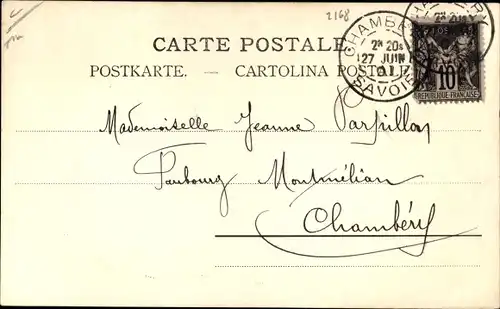 2168
CARTE POSTALE
POSTKARTE. — CARTOLINA POSTALE
CHAMBERY
2E 20s
27 JUIN
01
SAVOIE
10
REPUBLIQUE FRANÇAISE
Mademoiselle Jeanne
Faubourg Montmélian
Chambéry